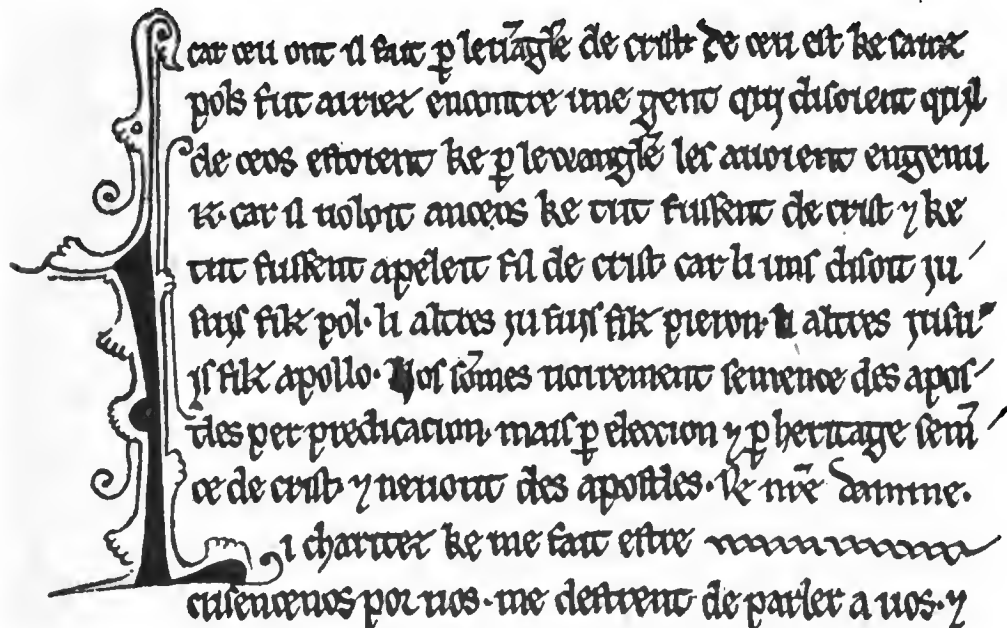 car ceu ont il fait ꝑ leuãgle de crist De ceu est ke sainz
pols fut airiez encontre une gent qui disoient quil
de ceos estoient ke ꝑ lewangle les auoient engenu
iz. car il uoloit anceos ke tut fussent de crist ⁊ ke
tut fussent apeleit fil de crist car li uns disoit iu
suys filz pol. li altres iu suys filz pieron. li altres iu su
ys filz apollo. Nos sõmes uoirement semence des apos
tles per predicacion. mais ꝑ eleccion ⁊ ꝑ heritage semẽ
ce de crist ⁊ neiout des apostles. Se nr̃e damine.
Li charitez ke me fait estre
cusencenos por uos. me destrent de parler a uos. ⁊